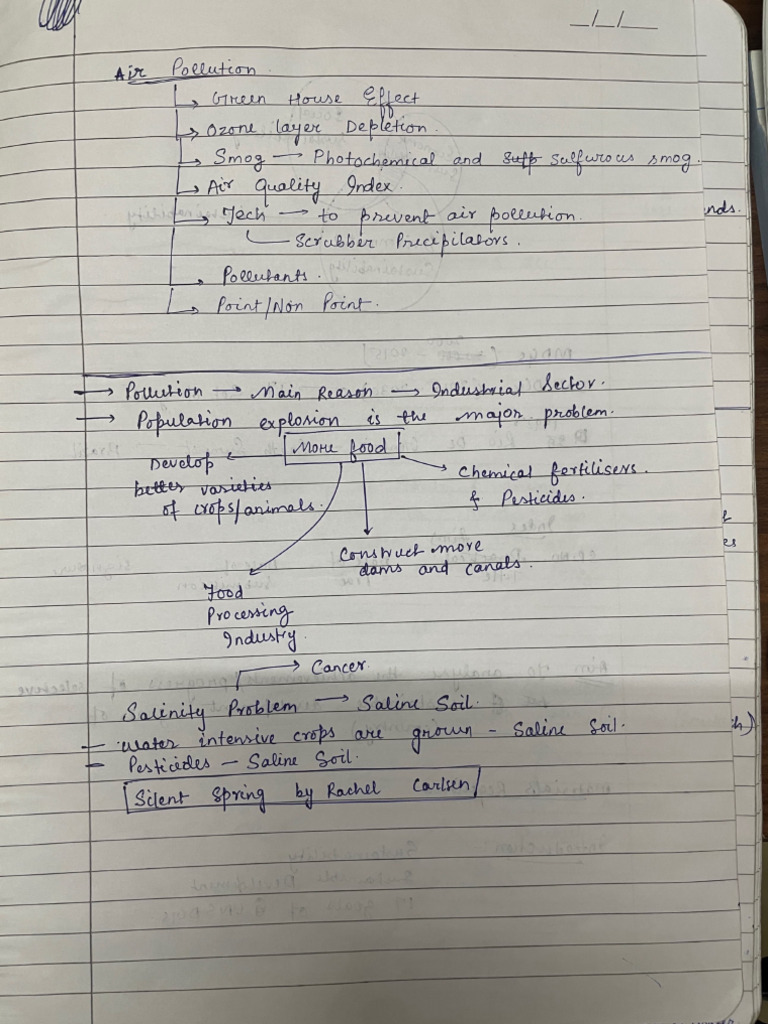 _/_/__
Air Pollution.
Green House Effect
Ozone layer Depletion.
Smog → Photochemical and Sulfurous smog.
Air Quality Index.
Tech → to prevent air pollution.
Scrubber Precipilators.
Pollutants.
Point/Non Point.
nds.
→ Pollution → Main Reason → Industrial Sector.
→ Population explosion is the major problem.
More food
Develop
better varieties
of crops/animals.
Chemical fertilisers
& Pesticides.
Construct more
dams and canals.
Food
Processing
Industry.
Cancer.
Salinity Problem → Saline Soil.
– Water intensive crops are grown – Saline Soil.
– Pesticides – Saline Soil.
Silent Spring by Rachel Carlsen